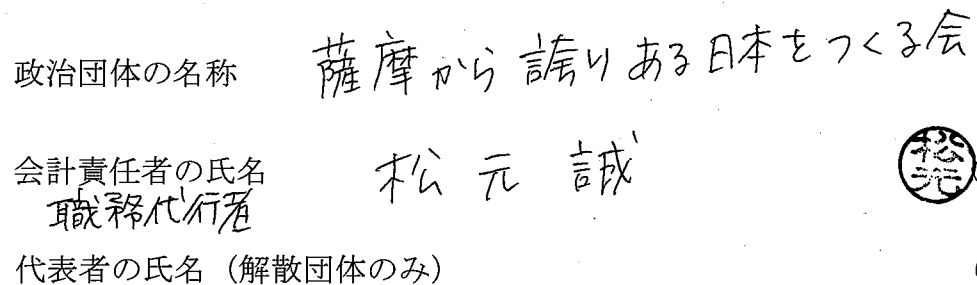 政治団体の名称 薩摩から誇りある日本をつくる会
会計責任者の氏名 松元 誠
職務代行者
代表者の氏名（解散団体のみ）
松元